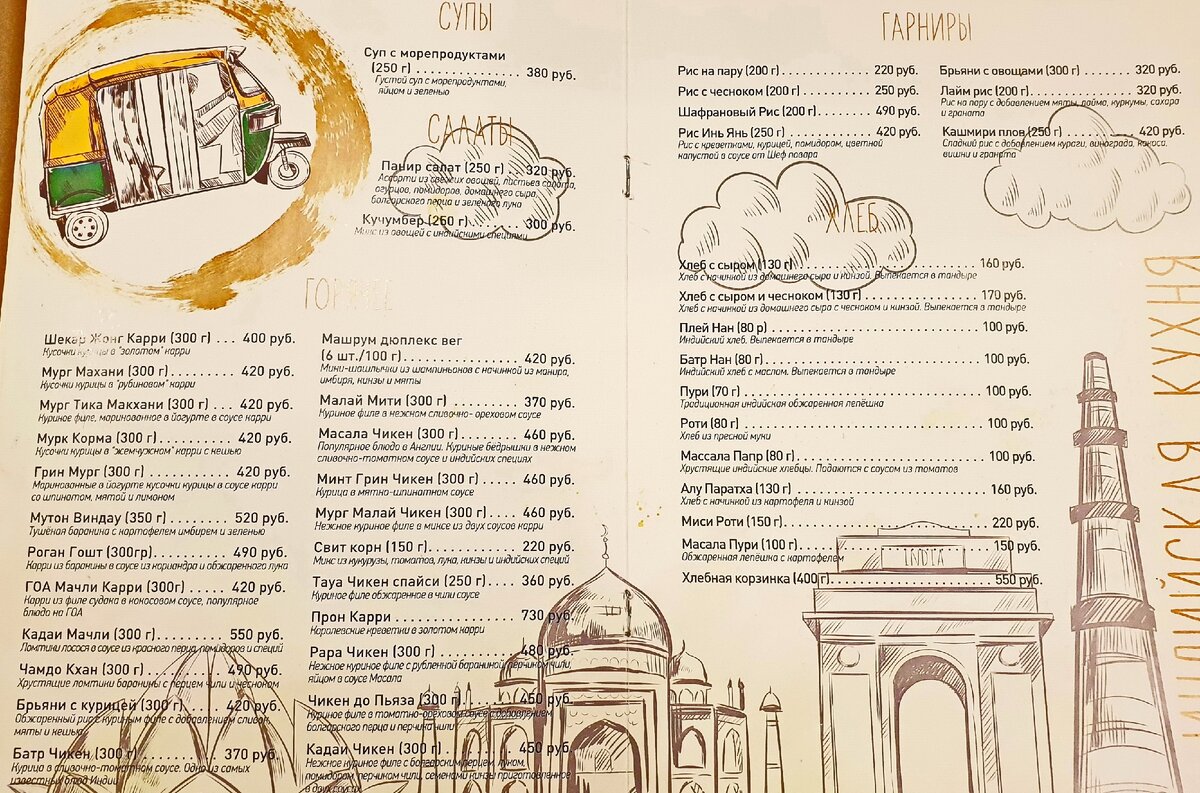 СУПЫ
Суп с морепродуктами
(250 г) . . . . . . . . . . . . . . . . 380 руб.
Густой суп с морепродуктами,
яйцом и зеленью
САЛАТЫ
Панир салат (250 г) . . . . 320 руб.
Ассорти из свежих овощей, листьев салата,
огурцов, помидоров, домашнего сыра,
болгарского перца и зелёного лука
Кучумбер (250 г) . . . . . . . . 300 руб.
Микс из овощей с индийскими специями
ГОРЯЧЕЕ
Шекар Жонг Карри (300 г) . . . 400 руб.
Кусочки курицы в "золотом" карри
Мург Махани (300 г) . . . . . . . . 420 руб.
Кусочки курицы в "рубиновом" карри
Мург Тика Макхани (300 г) . . . 420 руб.
Куриное филе, маринованное в йогурте в соусе карри
Мурк Корма (300 г) . . . . . . . . . 420 руб.
Кусочки курицы в "жемчужном" карри с кешью
Грин Мург (300 г) . . . . . . . . . . . 420 руб.
Маринованные в йогурте кусочки курицы в соусе карри
со шпинатом, мятой и лимоном
Мутон Виндау (350 г) . . . . . . . . 520 руб.
Тушёная баранина с картофелем имбирем и зеленью
Роган Гошт (300гр) . . . . . . . . . . 490 руб.
Карри из баранины в соусе из кориандра и обжаренного лука
ГОА Мачли Карри (300г) . . . . 420 руб.
Карри из филе судака в кокосовом соусе, популярное
блюдо на ГОА
Кадаи Мачли (300 г) . . . . . . . . . 550 руб.
Ломтики лосося в соусе из красного перца, помидоров и специй
Чамдо Кхан (300 г) . . . . . . . . . . 490 руб.
Хрустящие ломтики баранины с перцем чили и чесноком
Брьяни с курицей (300 г) . . . . . 420 руб.
Обжаренный рис с куриным филе с добавлением сливок,
мяты и кешью
Батр Чикен (300 г) . . . . . . . . . . 370 руб.
Курица в сливочно-томатном соусе. Одно из самых
известных блюд Индии
Машрум дюплекс вег
(6 шт./100 г) . . . . . . . . . . . . . . . 420 руб.
Мини-шашлычки из шампиньонов с начинкой из панира,
имбиря, кинзы и мяты
Малай Мити (300 г) . . . . . . . . . 370 руб.
Куриное филе в нежном сливочно- ореховом соусе
Масала Чикен (300 г) . . . . . . . . 460 руб.
Популярное блюдо в Англии. Куриные бёдрышки в нежном
сливочно-томатном соусе и индийских специях
Минт Грин Чикен (300 г) . . . . 460 руб.
Курица в мятно-шпинатном соусе
Мург Малай Чикен (300 г) . . . 460 руб.
Нежное куриное филе в миксе из двух соусов карри
Свит корн (150 г) . . . . . . . . . . . 220 руб.
Микс из кукурузы, томатов, лука, кинзы и индийских специй
Тауа Чикен спайси (250 г) . . . . 360 руб.
Куриное филе обжаренное в чили соусе
Прон Карри . . . . . . . . . . . . . . . 730 руб.
Королевские креветки в золотом карри
Рара Чикен (300 г) . . . . . . . . . . 480 руб.
Нежное куриное филе с рубленной бараниной, перчиком чили,
яйцом в соусе Масала
Чикен до Пьяза (300 г) . . . . . . . 450 руб.
Куриное филе в томатно-ореховом соусе с добавлением
болгарского перца и перчика чили
Кадаи Чикен (300 г) . . . . . . . . . 450 руб.
Нежное куриное филе с болгарским перцем, луком,
помидором, перчиком чили, семенами кинзы приготовленное
в двух соусах
ГАРНИРЫ
Рис на пару (200 г) . . . . . . . . . . . . . 220 руб.
Рис с чесноком (200 г) . . . . . . . . . . 250 руб.
Шафрановый Рис (200 г) . . . . . . . . 490 руб.
Рис Инь Янь (250 г) . . . . . . . . . . . . 420 руб.
Рис с креветками, курицей, помидором, цветной
капустой в соусе от Шеф повара
Брьяни с овощами (300 г) . . . . . . . 320 руб.
Лайм рис (200 г) . . . . . . . . . . . . . . . 320 руб.
Рис на пару с добавлением мяты, лайма, куркумы, сахара
и граната
Кашмири плов (250 г) . . . . . . . . . . 420 руб.
Сладкий рис с добавлением кураги, винограда, кокоса,
вишни и граната
ХЛЕБ
Хлеб с сыром (130 г) . . . . . . . . . . . . . . . . . . . . . . 160 руб.
Хлеб с начинкой из домашнего сыра и кинзой. Выпекается в тандыре
Хлеб с сыром и чесноком (130 г) . . . . . . . . . . . . . 170 руб.
Хлеб с начинкой из домашнего сыра с чесноком и кинзой. Выпекается в тандыре
Плей Нан (80 р) . . . . . . . . . . . . . . . . . . . . . . . . . . 100 руб.
Индийский хлеб. Выпекается в тандыре
Батр Нан (80 г) . . . . . . . . . . . . . . . . . . . . . . . . . . 100 руб.
Индийский хлеб с маслом. Выпекается в тандыре
Пури (70 г) . . . . . . . . . . . . . . . . . . . . . . . . . . . . . . 100 руб.
Традиционная индийская обжаренная лепёшка
Роти (80 г) . . . . . . . . . . . . . . . . . . . . . . . . . . . . . . 100 руб.
Хлеб из пресной муки
Массала Папр (80 г) . . . . . . . . . . . . . . . . . . . . . . . 100 руб.
Хрустящие индийские хлебцы. Подаются с соусом из томатов
Алу Паратха (130 г) . . . . . . . . . . . . . . . . . . . . . . . 160 руб.
Хлеб с начинкой из картофеля и кинзой
Миси Роти (150 г) . . . . . . . . . . . . . . . . . . . . . . . . 220 руб.
Масала Пури (100 г) . . . . . . . . . . . . . . . . . . . . . . 150 руб.
Обжаренная лепёшка с картофелем
Хлебная корзинка (400 г) . . . . . . . . . . . . . . . . . . 550 руб.
INDIA
ИНДИЙСКАЯ КУХНЯ